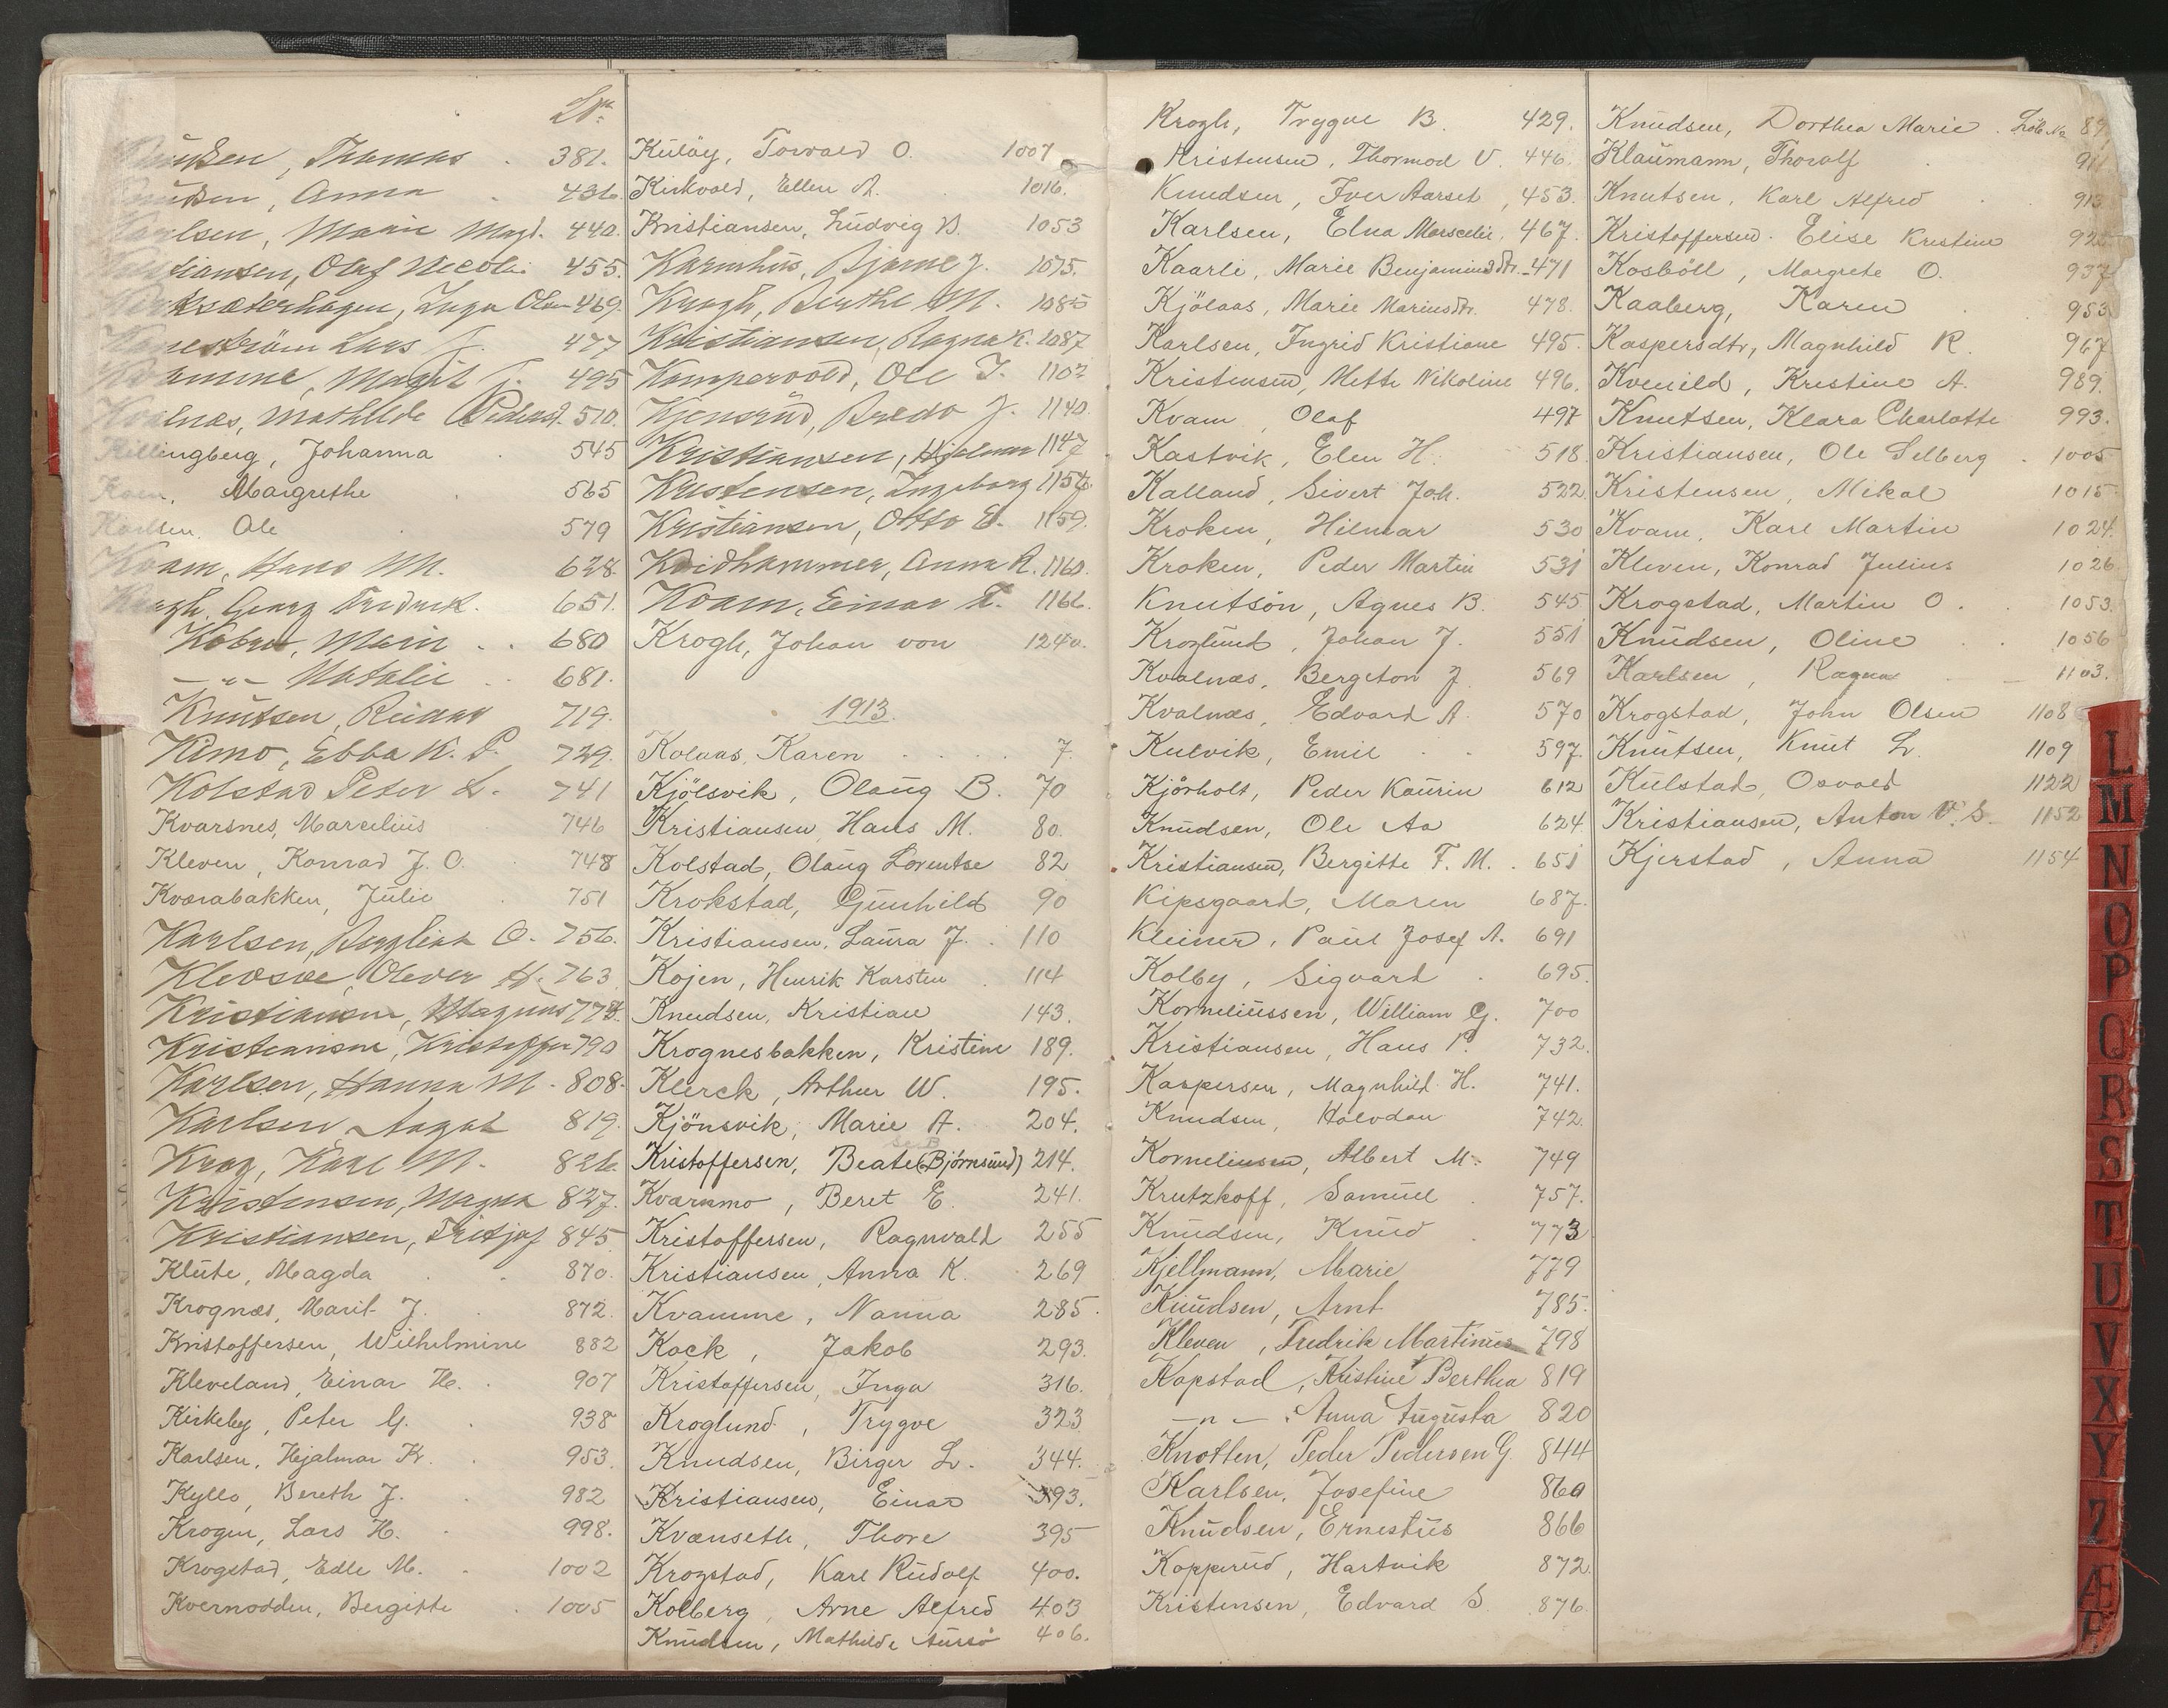 Nr.
Knudsen, Thomas . 381.
Knudsen, Anna . 436.
Karlsen, Marie Magd. 440.
Kristiansen, Olaf Nicolai 455.
Inga Olsen 469.
Lars J. 477
Kvamme, Magnhild J. 495
Kvalnæs, Mathilde Pedersd. 510.
Killingberg, Johanna . 545
Margrethe . 565
Karlsen, Ole . 579
Kvam, Hans M. 628.
Krogh, Georg Fredrick. 651.
Marie . . 680
— " — Natalie . . 681.
Knutsen, Reidar 719.
Kimo, Ebba K. P. 729.
Kolstad Peter L. - 741
Kvarsnes, Marcelius 746
Kleven, Konrad J. O. . 748
Kvarabakken, Julie . 751
Karlsen, Bergliot O. - 756.
Olever H. 763
Kristiansen, Magnus 778.
Kristiansen, Kristoffer 790
Karlsen, Hanna M - 808.
Karlsen, Aagot 819.
Krog, Karl M. - 826.
Kristensen, Magna 827.
Kristiansen, Fritjof 845.
Klüte, Magda . . 870.
Krognæs, Marit J. . 872.
Kristoffersen, Wilhelmine 882
Kleveland, Einar H. . 907
Kirkeby, Peter G. . 938
Karlsen, Hjalmar Kr. . 953.
Kyllo, Bereth J. . 982
Krogen, Lars H. . 998.
Krogstad, Edle M. . 1002
Kvernodden, Bergitte . 1005
Külöy, Torvald O. 1007
Kirkvold, Ellen A. . 1016.
Kristiansen, Ludvig B. 1053
Karmhus, Bjarne J. 1075.
Krogh, Birthe M. 1085
Kristiansen, Ragna K. 1087
Kampervold, Ole J. 1102
Kjensrud, Bredo J. 1140.
Kristiansen, Hjalmar 1147
Kristensen, Ingeborg 1154.
Kristiansen, Otto E. 1159.
Kvidhammer, Anna R. 1160.
Kvam, Einar T. 1166.
Krogh, Johan von 1240.
1913.
Kolaas, Karen . . . . 7.
Kjölsvik, Olaug B. 70
Kristiansen, Hans M. 80.
Kolstad, Olaug Lorentse 82
Krokstad, Gunhild 90
Kristiansen, Laura J. . 110
Kojen, Henrik Karsten . 114
Knudsen, Kristian 143.
Krognesbakken, Kristine 189.
Klerck, Arthur W. 195.
Kjönsvik, Marie A. 204.
Kristoffersen, Beate (Björnsund) 214.
Kvarmo, Beret E. 241.
Kristoffersen, Ragnvald 255
Kristiansen, Anna K. . 269
Kvamme, Nanna 285.
Kock, Jakob 293.
Kristoffersen, Inga 316.
Kroglund, Trygve 323
Knudsen, Birger L. 344.
Kristiansen, Einar 393.
Kvænseth, Thore 395
Krogstad, Karl Rudolf 400.
Kolberg, Arne Alfred 403
Knudsen, Mathilde Aursö 406.
Krogh, Trygve B. 429.
Kristensen, Thormod V. 446.
Knudsen, Iver Aarset, 453.
Karlsen, Elna Marselie. 467.
Kaarli, Marie Benjaminsdtr. 471
Kjölaas, Marie Mariusdtr. 478.
Karlsen, Ingrid Kristiane 495.
Kristensen, Mette Nikoline 496.
Kvam, Olaf 497
Kastvik, Elen H. 518.
Kalland, Sivert Joh. 522.
Kroken, Hilmar 530
Kroken, Peder Martin 531
Knutsön, Agnes B. 545.
Kroglund, Johan J. 551
Kvalnæs, Bergeton J. 569
Kvalnæs, Edvard A. 570
Kulvik, Emil . . 597.
Kjörholt, Peder Kaurin 612
Knudsen, Ole Aa 624.
Kristiansen, Bergitte F. M. . 651
Kipsgaard, Maren 687.
Kleiner, Paul Josef A. 691
Kolby, Sigvart . 695.
Korneliussen, William G. 700
Kristiansen, Hans P. 732.
Kaspersen, Magnhild H. 741.
Knudsen, Halvdan 742.
Korneliusen, Albert M. 749
Krutzkoff, Samuel . 757.
Knudsen, Knud . 773
Kjellmann, Marie 779
Knudsen, Arnt 785.
Kleven, Fredrik Martinus 798
Kopstad, Kristine Berthea 819
— " — Anna Augusta 820
Knotten, Peder Pedersen G. 844
Karlsen, Josefine 860
Knudsen, Ernestus 866
Kopperud, Hartvik 872.
Kristensen, Edvard S. 876.
Knudsen, Dorthea Marie . Löb. No 89
Klaumann, Thoralf . 911
Knutsen, Karl Alfred . . 913
Kristoffersen. Elise Kristine 925
Kosböll, Margrete O. 937
Kaaberg, Karen . 953
Kaspersdtr, Magnhild R. 967
Kvenild, Kristine A. 989.
Knutsen, Klara Charlotte 993.
Kristiansen, Ole Selberg . 1005
Kristensen, Mikal 1015
Kvam, Karl Martin 1024.
Kleven, Konrad Julius 1026
Krogstad, Martin O. . 1053.
Knudsen, Oline . . 1056
Karlsen, Ragna — 1103.
Krogstad, John Olsen 1108
Knutsen, Knut L. 1109
Kulstad, Osvald 1122
Kristiansen, Anton V. S. 1152
Kjerstad, Anna 1154
L
M
N
O
P
Q
R
S
T
U
V
X
Y
Z
Æ